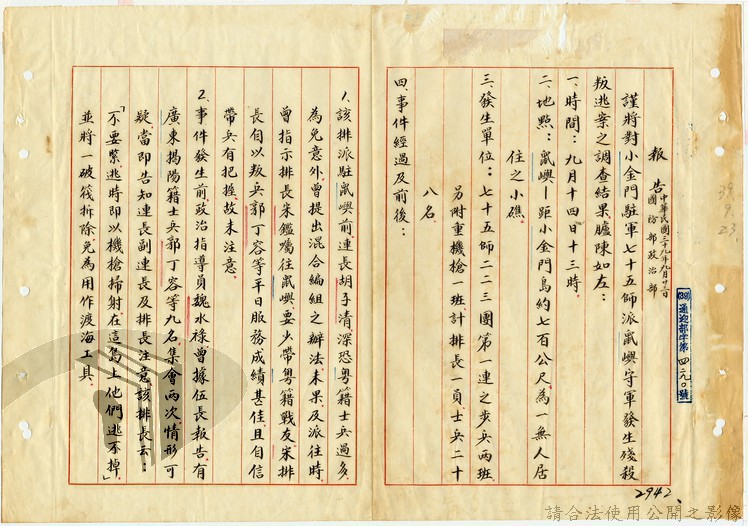 報告 中華民國三十九年九月廿三日
國防部政治部
(39)通迎部字第四二九〇號
39.
9.
23.
謹將對小金門駐軍七十五師派鼠嶼守軍發生殘殺
叛逃案之調查結果臚陳如左：
一、時間：九月十四日十三時。
二、地點：鼠嶼—距小金門島約七百公尺為一無人居
住之小礁。
三、發生單位：七十五師二二三團第一連之步兵兩班、
另附重機槍一班、計排長一員、士兵二十
八名。
四、事件經過及前後：
1、該排派駐鼠嶼前連長胡子清、深恐粵籍士兵過多、
為免意外、曾提出混合編組之辦法未果、及派往時
曾指示排長朱鑑囑往鼠嶼要少帶粵籍戰友、朱排
長自以叛兵郭丁容等平日服務成績甚佳、且自信
帶兵有把握、故未注意。
2、事件發生前政治指導員魏水祿曾據伍長報告有
廣東揭陽籍士兵郭丁容等九名、集會兩次情形可
疑、當即告知連長副連長及排長注意、該排長云：
「不要緊、逃時即以機槍掃射、在這島上他們逃不掉」
並將一破筏拆除、免為用作渡海工具。
2942、
請合法使用公開之影像